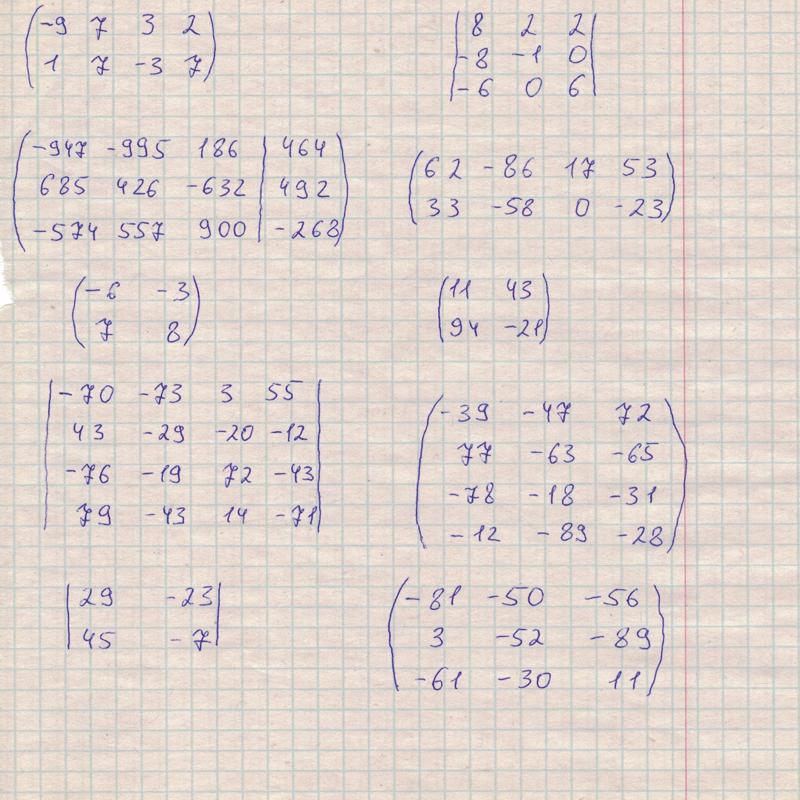 -9 7 3 2
1 7 -3 7
8 2 2
-8 -1 0
-6 0 6
-947 -995 186 | 464
685 426 -632 | 492
-574 557 900 | -268
62 -86 17 53
33 -58 0 -23
-6 -3
7 8
11 43
94 -21
-70 -73 3 55
43 -29 -20 -12
-76 -19 72 -43
79 -43 14 -71
-39 -47 72
77 -63 -65
-78 -18 -31
-12 -89 -28
29 -23
45 -7
-81 -50 -56
3 -52 -89
-61 -30 11